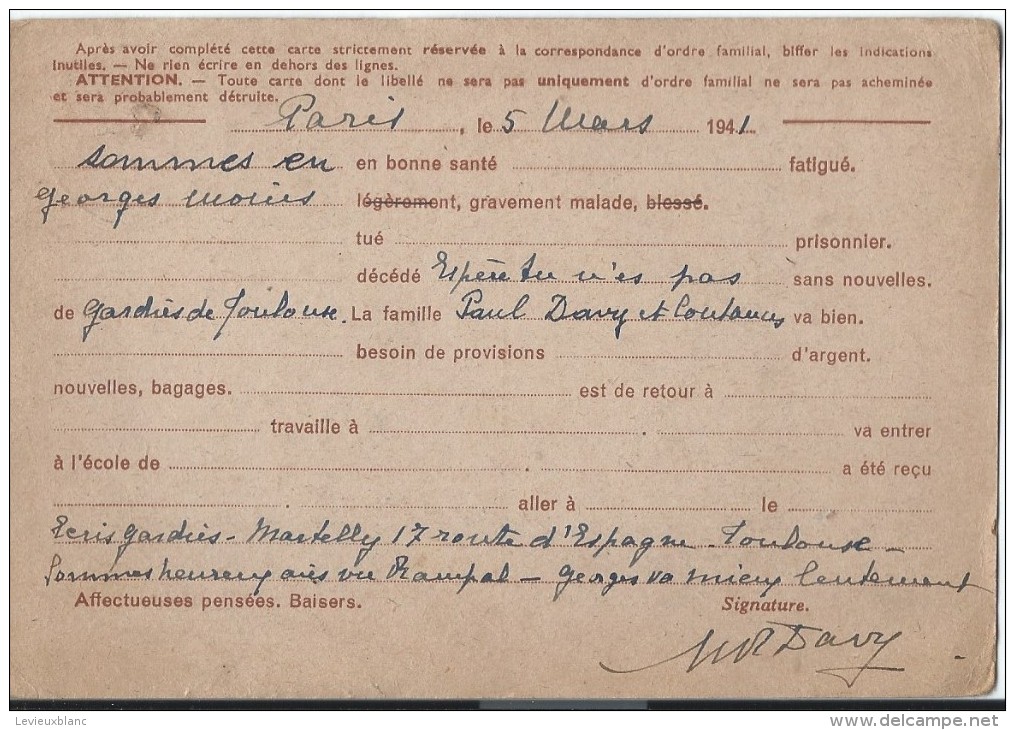 Après avoir complété cette carte strictement réservée à la correspondance d'ordre familial, biffer les indications
inutiles. — Ne rien écrire en dehors des lignes.
ATTENTION. — Toute carte dont le libellé ne sera pas uniquement d'ordre familial ne sera pas acheminée
et sera probablement détruite.
Paris, le 5 Mars 1941.
sommes en en bonne santé fatigué.
Georges moins légèrement, gravement malade, blessé.
tué prisonnier.
décédé Espère tu n'es pas sans nouvelles.
de Gardiès de Toulouse. La famille Paul Davy et va bien.
besoin de provisions d'argent.
nouvelles, bagages. est de retour à
travaille à va entrer
à l'école de a été reçu
aller à le
Ecris Gardiès - Martelly 17 route d'Espagne Toulouse -
Sommes heureux vu Rampal - Georges va mieux lentement
Affectueuses pensées. Baisers. Signature.
Davy
Levieuxblanc
delcampe.net